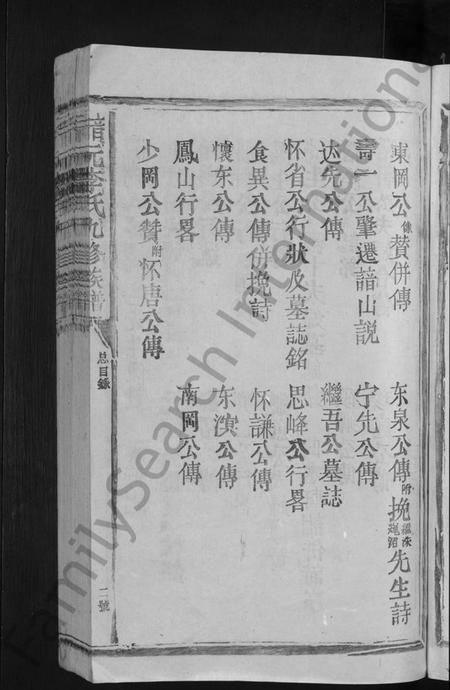 東岡公像贊併傳
东泉公傳附挽先生詩
壽一公肇遷諳山説
宁先公傳
述先公傳
繼吾公墓誌
怀省公行狀及墓誌銘
思峰公行畧
食異公傳併挽詩
怀謙公傳
懷东公傳
东濱公傳
鳳山行畧
南岡公傳
少岡公贊附怀唐公傳
李氏九修族譜
总目錄
二號
FamilySearch International